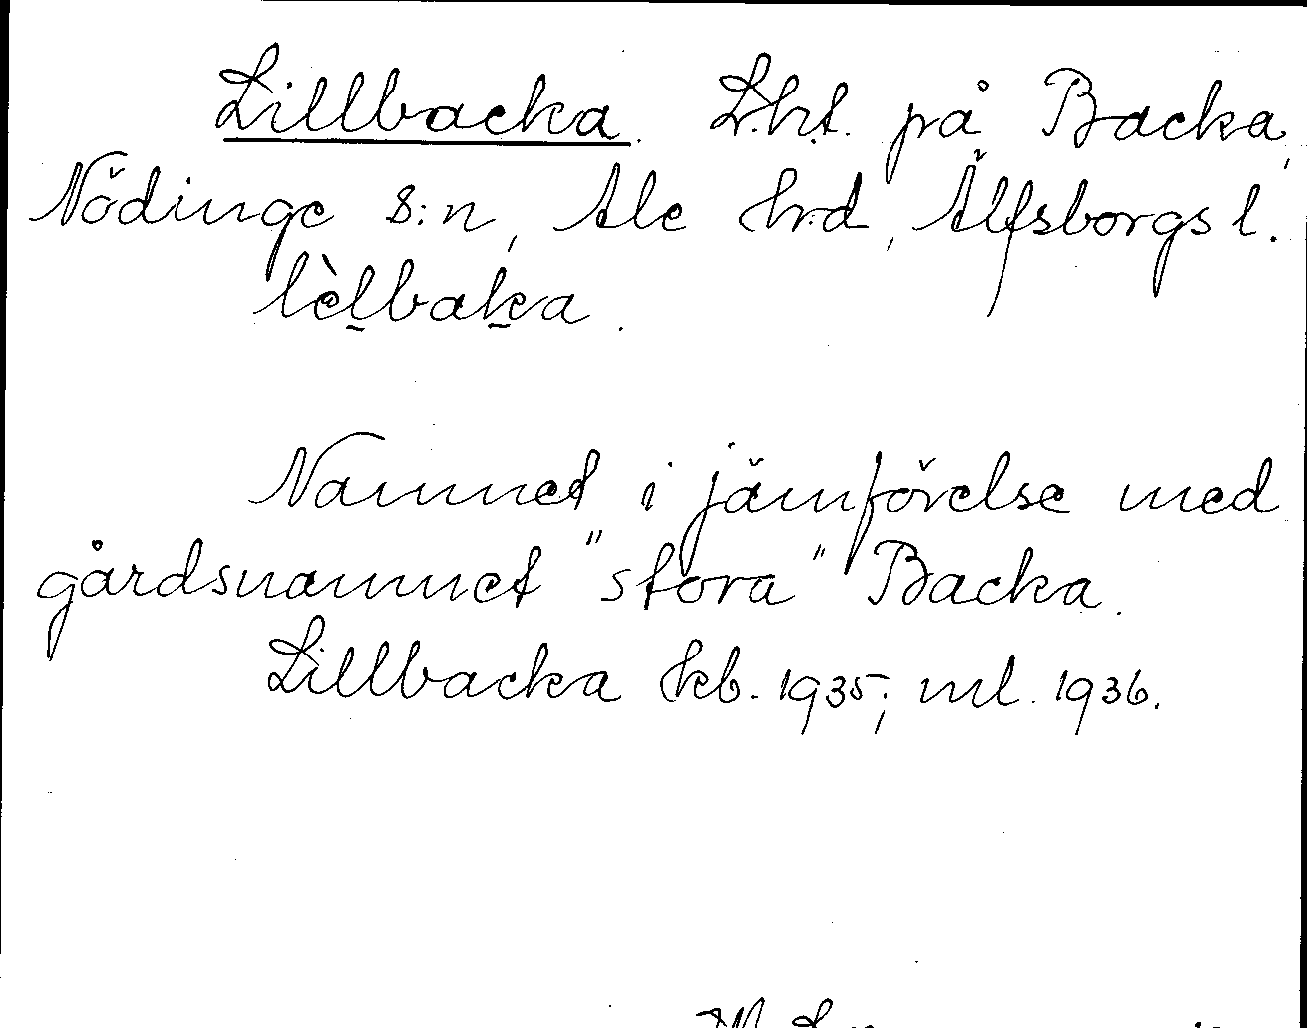 Lillbacka. L.ht. på Backa,
Nödinge s:n, Ale hrd, Älfsborgs l.
lèl̠bak̠a.
Namnet i jämförelse med
gårdsnamnet "stora" Backa.
Lillbacka kb. 1935; ml. 1936.